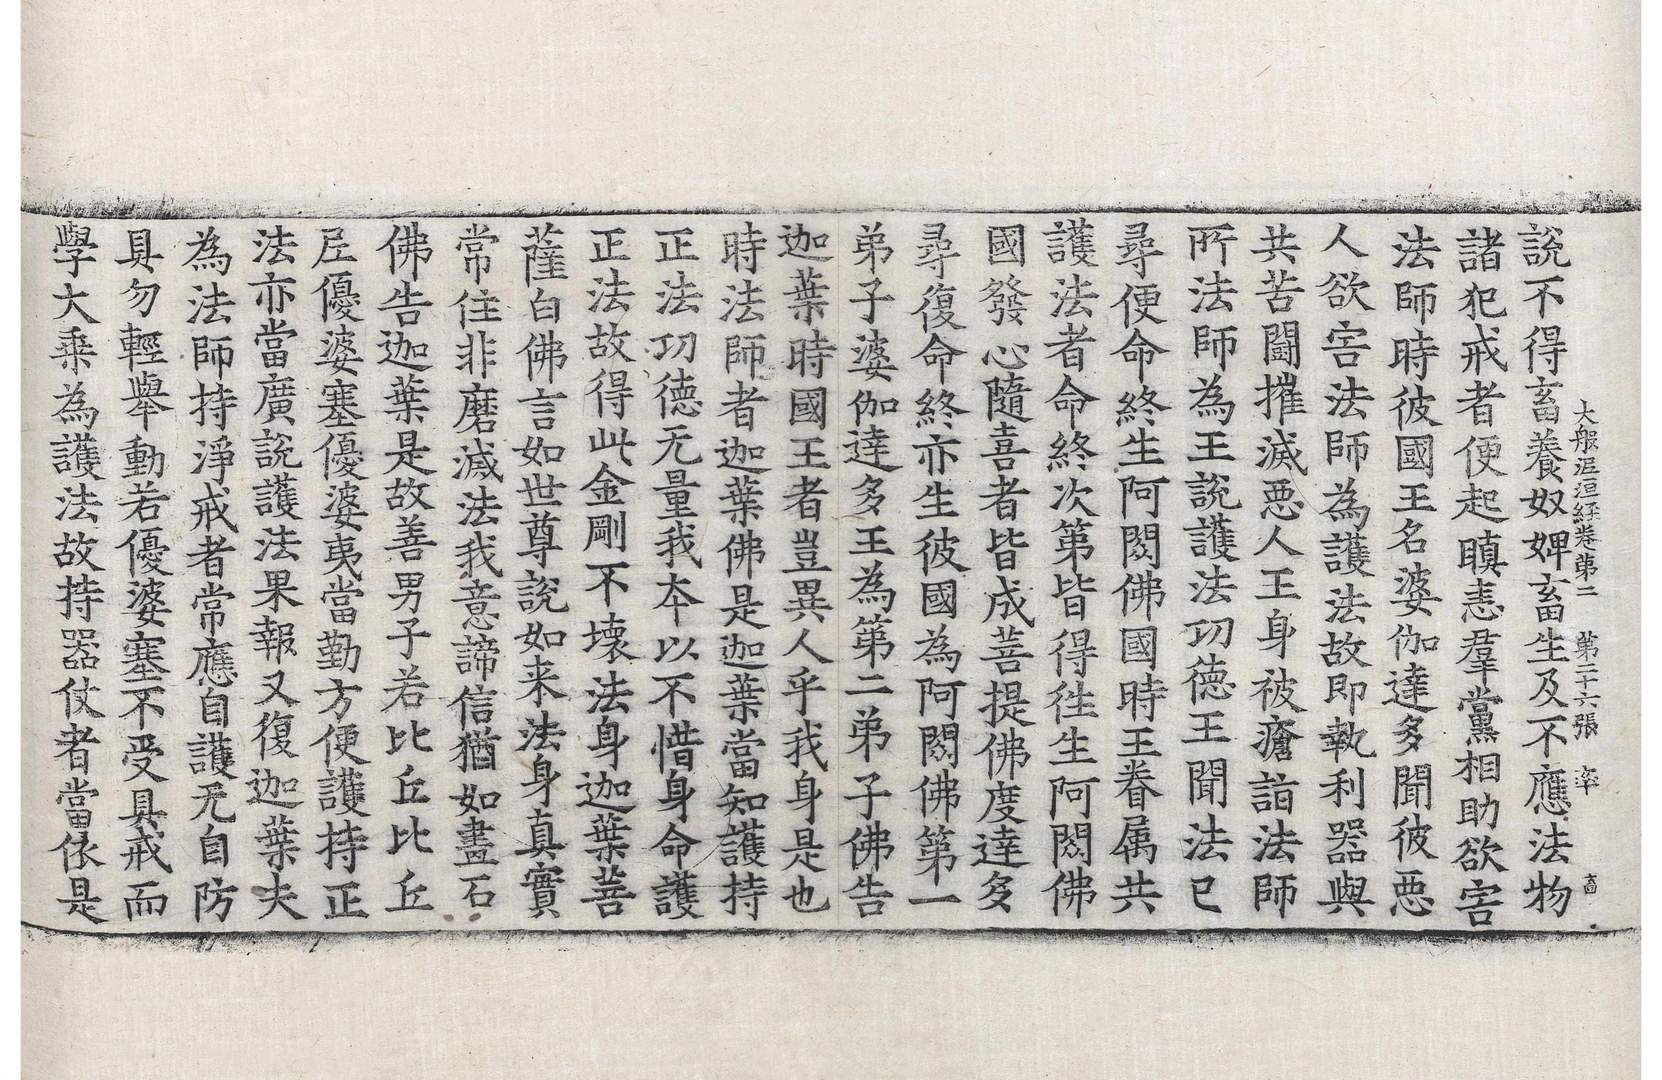 大般泥洹経卷第二　第二十六張　率
說不得畜養奴婢畜生及不應法物
諸犯戒者便起瞋恚羣黨相助欲害
法師時彼國王名婆伽達多聞彼惡
人欲害法師為護法故即執利器與
共苦鬪摧滅惡人王身被瘡詣法師
所法師為王說護法功德王聞法已
尋便命終生阿閦佛國時王眷属共
護法者命終次第皆得徃生阿閦佛
國發心隨喜者皆成菩提佛度達多
尋復命終亦生彼國為阿閦佛第一
弟子婆伽達多王為第二弟子佛告
迦葉時國王者豈異人乎我身是也
時法師者迦葉佛是迦葉當知護持
正法功德无量我夲以不惜身命護
正法故得此金剛不壞法身迦葉菩
薩白佛言如世尊說如来法身真實
常住非磨滅法我意諦信猶如畫石
佛告迦葉是故善男子若比丘比丘
尼優婆塞優婆夷當勤方便護持正
法亦當廣說護法果報又復迦葉夫
為法師持淨戒者常應自護无自防
具勿輕舉動若優婆塞不受具戒而
學大乗為護法故持器仗者當依是